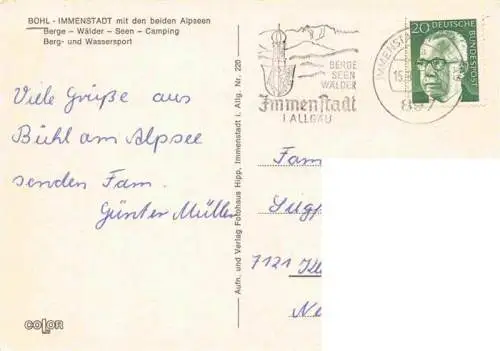 BÜHL - IMMENSTADT mit den beiden Alpseen
Berge - Wälder - Seen - Camping
Berg- und Wassersport
Viele Grüße aus
Bühl am Alpsee
senden Fam.
Günter Müller
color
Aufn. und Verlag Fotohaus Hipp, Immenstadt i. Allg. Nr. 220
BERGE
SEEN
WÄLDER
Immenstadt
I. ALLGÄU
IMMENSTA
15.
20 DEUTSCHE
BUNDESPOST
Fam
7121